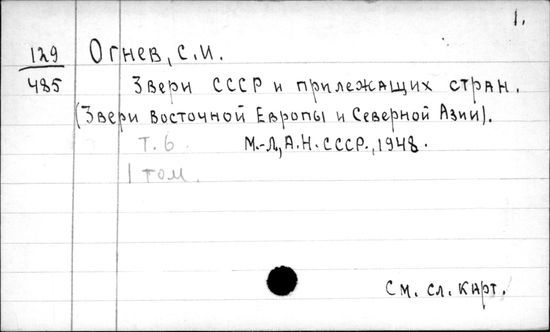 1.
129 Огнев, С.И.
485 Звери СССР и прилежащих стран.
(Звери Восточной Европы и Северной Азии).
Т. 6 М.-Л, А.Н. СССР., 1948.
1 том.
См. сл. карт.